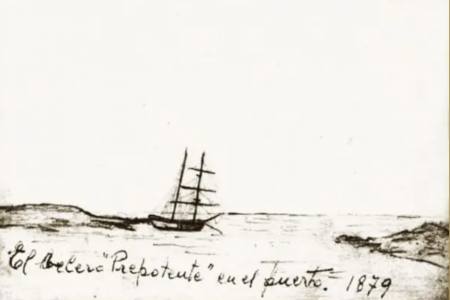 El velero "Prepotente" en el puerto. 1879